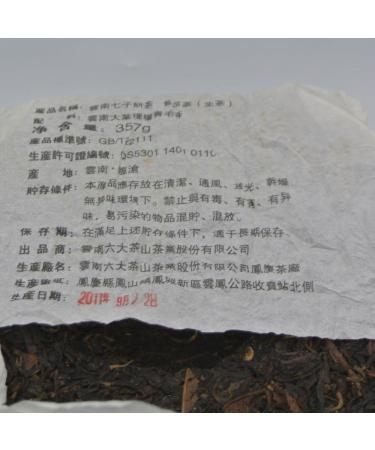 產品名稱：雲南七子餅茶 普洱茶（生茶）
配 料：雲南大葉種曬青毛茶
淨 含 量：357g
產品標準號：GB/T22111
生產許可證編號：QS5301 1401 0110
產 地：雲南·臨滄
貯存條件：本產品應存放在清潔、通風、避光、乾燥、
無異味環境下。禁止與有毒、有害、有異
味、易污染的物品混貯、混放。
保 存 期：在滿足上述貯存條件下，適于長期保存。
出 品 商：雲南六大茶山茶業股份有限公司
生產廠名：雲南六大茶山茶業股份有限公司鳳慶茶廠
鳳慶縣鳳山鎮鳳 新區雲鳳公路收費站北側
生產日期：2011年 9月 28